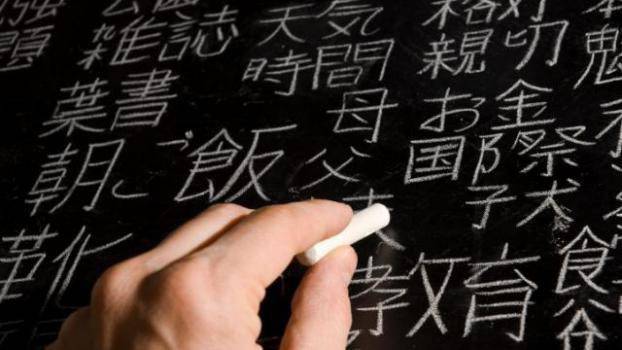 強
題 雑誌 天気
時間 親切 鬼
葉書 母 お金
朝ご飯 父 国際
子犬
革化 教育 食